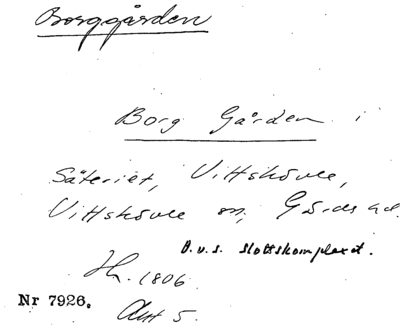 Borggården
Borg Gården i
Säteriet, Vittskövle,
Vittskövle sn, Gärds hd.
D.v.s. slottskomplexet.
Hk. 1806
Nr 7926. Akt 5.